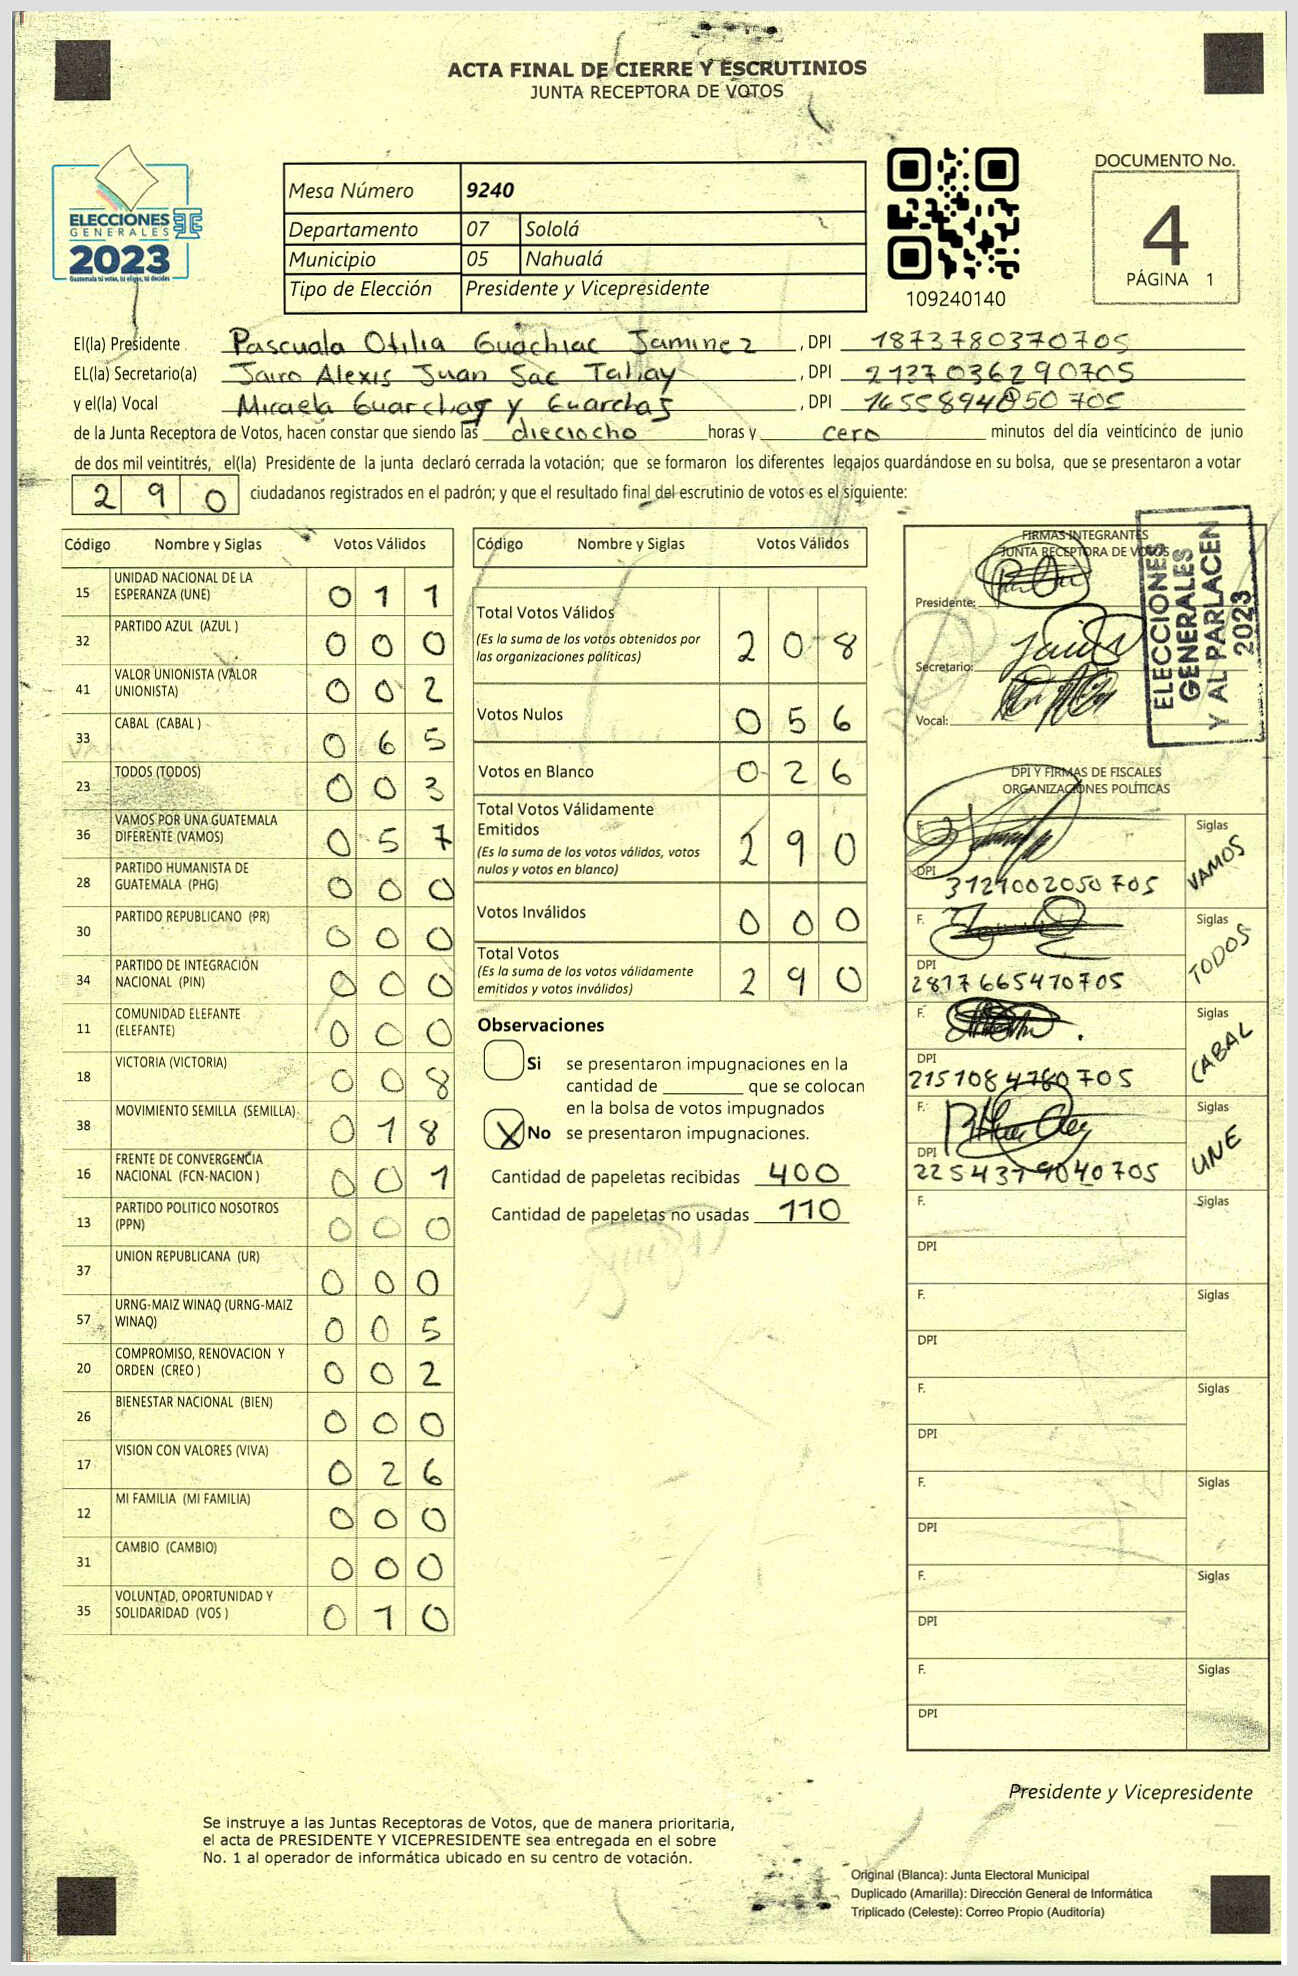 ACTA FINAL DE CIERRE Y ESCRUTINIOS
JUNTA RECEPTORA DE VOTOS
ELECCIONES
GENERALES
2023
Guatemala tú votas, tú eliges, tú decides
Mesa Número 9240
Departamento 07 Sololá
Municipio 05 Nahualá
Tipo de Elección Presidente y Vicepresidente
109240140
DOCUMENTO No.
4
PÁGINA 1
El(la) Presidente Pascuala Otilia Guachiac Jaminez , DPI 1873780370705
EL(la) Secretario(a) Jairo Alexis Juan Sac Tahay , DPI 2137036290705
y el(la) Vocal Micaela Guarchaj y Guarchaj , DPI 1655894850705
de la Junta Receptora de Votos, hacen constar que siendo las dieciocho horas y cero minutos del día veinticinco de junio
de dos mil veintitrés, el(la) Presidente de la junta declaró cerrada la votación; que se formaron los diferentes legajos guardándose en su bolsa, que se presentaron a votar
290 ciudadanos registrados en el padrón; y que el resultado final del escrutinio de votos es el siguiente:
Código Nombre y Siglas Votos Válidos
15 UNIDAD NACIONAL DE LA ESPERANZA (UNE) 011
32 PARTIDO AZUL (AZUL ) 000
41 VALOR UNIONISTA (VALOR UNIONISTA) 002
33 CABAL (CABAL ) 065
23 TODOS (TODOS) 003
36 VAMOS POR UNA GUATEMALA DIFERENTE (VAMOS) 057
28 PARTIDO HUMANISTA DE GUATEMALA (PHG) 000
30 PARTIDO REPUBLICANO (PR) 000
34 PARTIDO DE INTEGRACIÓN NACIONAL (PIN) 000
11 COMUNIDAD ELEFANTE (ELEFANTE) 000
18 VICTORIA (VICTORIA) 008
38 MOVIMIENTO SEMILLA (SEMILLA) 018
16 FRENTE DE CONVERGENCIA NACIONAL (FCN-NACION ) 001
13 PARTIDO POLITICO NOSOTROS (PPN) 000
37 UNION REPUBLICANA (UR) 000
57 URNG-MAIZ WINAQ (URNG-MAIZ WINAQ) 005
20 COMPROMISO, RENOVACION Y ORDEN (CREO ) 002
26 BIENESTAR NACIONAL (BIEN) 000
17 VISION CON VALORES (VIVA) 026
12 MI FAMILIA (MI FAMILIA) 000
31 CAMBIO (CAMBIO) 000
35 VOLUNTAD, OPORTUNIDAD Y SOLIDARIDAD (VOS ) 010
Código Nombre y Siglas Votos Válidos
Total Votos Válidos
(Es la suma de los votos obtenidos por las organizaciones políticas) 208
Votos Nulos 056
Votos en Blanco 026
Total Votos Válidamente Emitidos
(Es la suma de los votos válidos, votos nulos y votos en blanco) 290
Votos Inválidos 000
Total Votos
(Es la suma de los votos válidamente emitidos y votos inválidos) 290
Observaciones
Si se presentaron impugnaciones en la
cantidad de ________ que se colocan
en la bolsa de votos impugnados
X No se presentaron impugnaciones.
Cantidad de papeletas recibidas 400
Cantidad de papeletas no usadas 110
FIRMAS INTEGRANTES
JUNTA RECEPTORA DE VOTOS
Presidente:
Secretario:
Vocal:
ELECCIONES
GENERALES
Y AL PARLACEN
2023
DPI Y FIRMAS DE FISCALES
ORGANIZACIONES POLÍTICAS
F. Siglas VAMOS
DPI 3121002050705
F. Siglas TODOS
DPI 2817665470705
F. Siglas CABAL
DPI 2151084780705
F. Siglas UNE
DPI 2254379040705
F. Siglas
DPI
F. Siglas
DPI
F. Siglas
DPI
F. Siglas
DPI
F. Siglas
DPI
F. Siglas
DPI
Presidente y Vicepresidente
Se instruye a las Juntas Receptoras de Votos, que de manera prioritaria,
el acta de PRESIDENTE Y VICEPRESIDENTE sea entregada en el sobre
No. 1 al operador de informática ubicado en su centro de votación.
Original (Blanca): Junta Electoral Municipal
Duplicado (Amarilla): Dirección General de Informática
Triplicado (Celeste): Correo Propio (Auditoría)